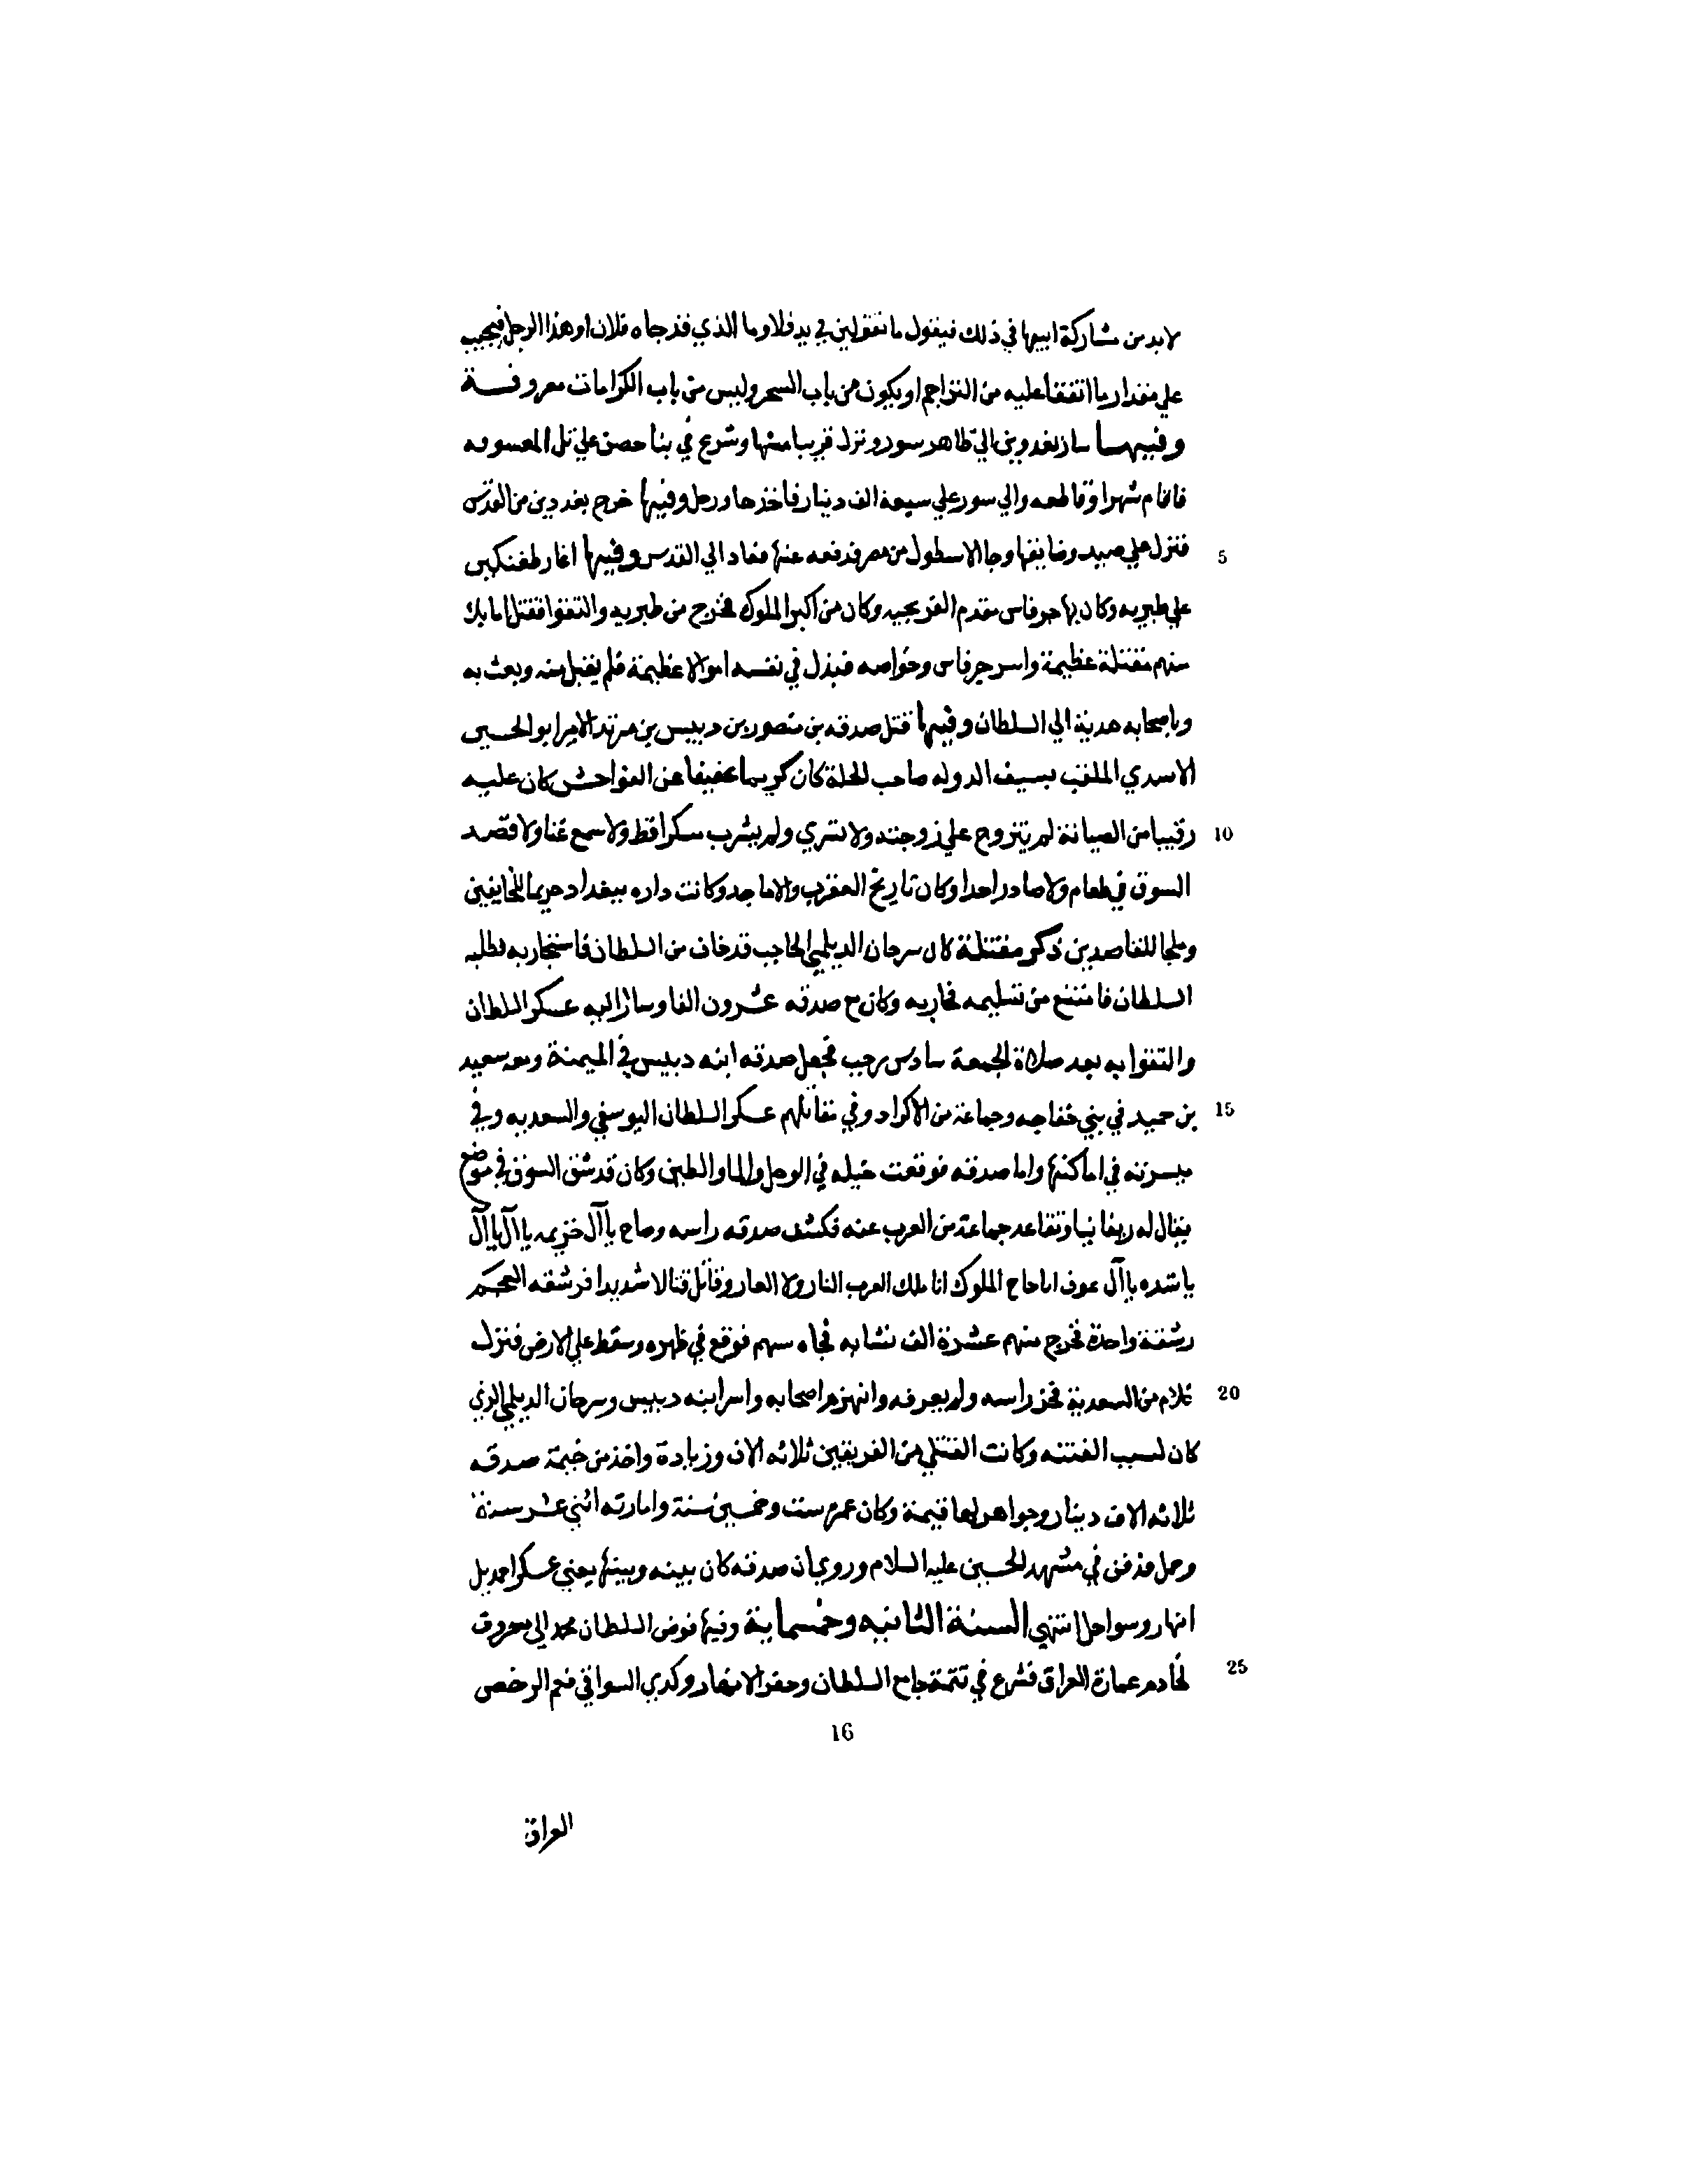 لابد من مشاركة ابيها في ذلك فيقول ما تقولين في يد فلا وما الذي قد جاه فلان او هذا الرجل فيجيب
علي مقدار ما اتفقا عليه من التراجم او يكون من باب السحر وليس من باب الكرامات معروفة
وفيهــا سار بغدوين الي ظاهر سور ونزل قريبا منها وشرع في بنا حصن علي تل المعسوقه
فاقام شهرا وقاطعه والي سور علي سبعة الف دينار فاخذها ورحل وفيها خرج بغدوين من القدس
5 فنزل علي صيدا وضايقها وجا الاسطول من مصر فدفعه عنها فعاد الي القدس وفيها اغار طغتكين
علي طبريه وكان بها جرفاس مقدم الفرنجيه وكان من اكبر الملوك فخرج من طبريه والتقوا فقتل اتابك
منهم مقتلة عظيمة واسر جرفاس وخواصه فبذل في نفسه اموالا عظيمة فلم يقبل منه وبعث به
وباصحابه هدية الي السلطان وفيها قتل صدقه بن منصور بن دبيس بن مرتد الامير ابو الحسين
الاسدي الملقب بسيف الدوله صاحب الحلة كان كريما عفيفا عن الفواحش كان عليه
10 رقيبا من الصيانة لم يتزوج علي زوجته ولا تسري ولم يشرب سكرا قط ولا سمع غنا ولا قصد
السوق في طعام ولا صادر احدا وكان تاريخ العرب والاماجد وكانت داره ببغداد حريما للخايفين
وملجا للقاصدين ذكر مقتلة كان سرحان الديلمي الحاجب قد خاف من السلطان فاستجار به فطلبه
السلطان فامتنع من تسليمه فحاربه وكان مع صدقه عشرون الفا وسار اليه عسكر السلطان
والتقوا به بعد صلاة الجمعة سادس رجب فجعل صدقه ابنه دبيس في الميمنة ومعه سعيد
15 بن حميد في بني خفاجه وجماعة من الاكراد وفي مقابلهم عسكر السلطان اليوسفي والسعديه وفي
ميسرته في اماكنها واما صدقه فوقعت خيله في الوحل والما والطين وكان قد شق السوق في موضع
يقال له ريفانيا وتقاعد جماعة من العرب عنه فكشف صدقه راسه وصاح يا آل خزيمه يا آل يا آل
ناشده يا آل عوف انا تاج الملوك انا ملك العرب النار ولا العار وقاتل قتالا شديدا فرشقه العجم
رشقة واحدة فخرج منهم عشرة الف نشابه فجاه سهم فوقع في ظهره وسقط علي الارض فنزل
20 غلام من السعدية فحز راسه ولم يعرفه وانهزم اصحابه واسر ابنه دبيس وسرحان الديلمي الذي
كان لسبب الفتنه وكانت القتلي من الفريقين ثلاثه الاف وزيادة واخذ من خيمة صدقه
ثلاثه الاف دينار وجواهر لها قيمة وكان عمره ست وخمسين سنة وامارته اثني عشر سنة
وحمل فدفن في مشهد الحسين عليه السلام وروي ان صدقه كان بينه وبينها يعني عسكر احمد بل
انهار وسواحل انتهي السنة الثانيه وخمسماية وفيها فوض السلطان محمد الي معروف
25 الخادم عمارة العراق فشرع في تتمة جامع السلطان وحفر الانهار وكري السواقي فعم الرخص
16
العراق